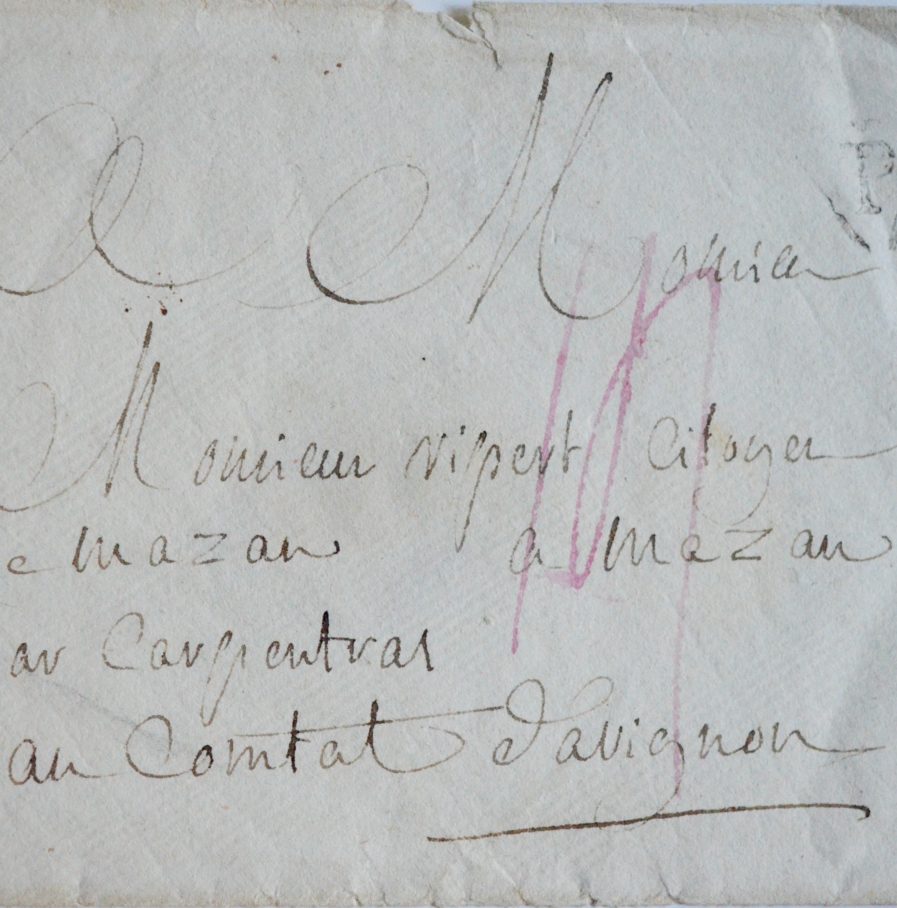 A Monsieur
Monsieur vipert Citoyen
e mazan a mazan
ar Carpentras
au Comtat d'avignon